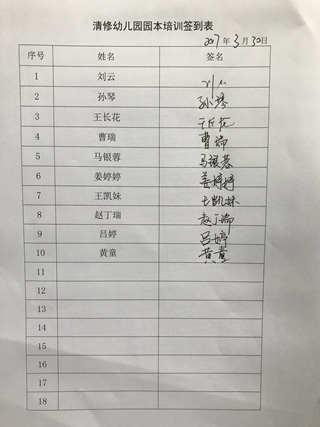 清修幼儿园园本培训签到表
2017年3月30日
序号 姓名 签名
1 刘云 刘云
2 孙琴 孙琴
3 王长花 王长花
4 曹瑞 曹瑞
5 马银蓉 马银蓉
6 姜婷婷 姜婷婷
7 王凯妹 王凯妹
8 赵丁瑞 赵丁瑞
9 吕婷 吕婷
10 黄童 黄童
11
12
13
14
15
16
17
18